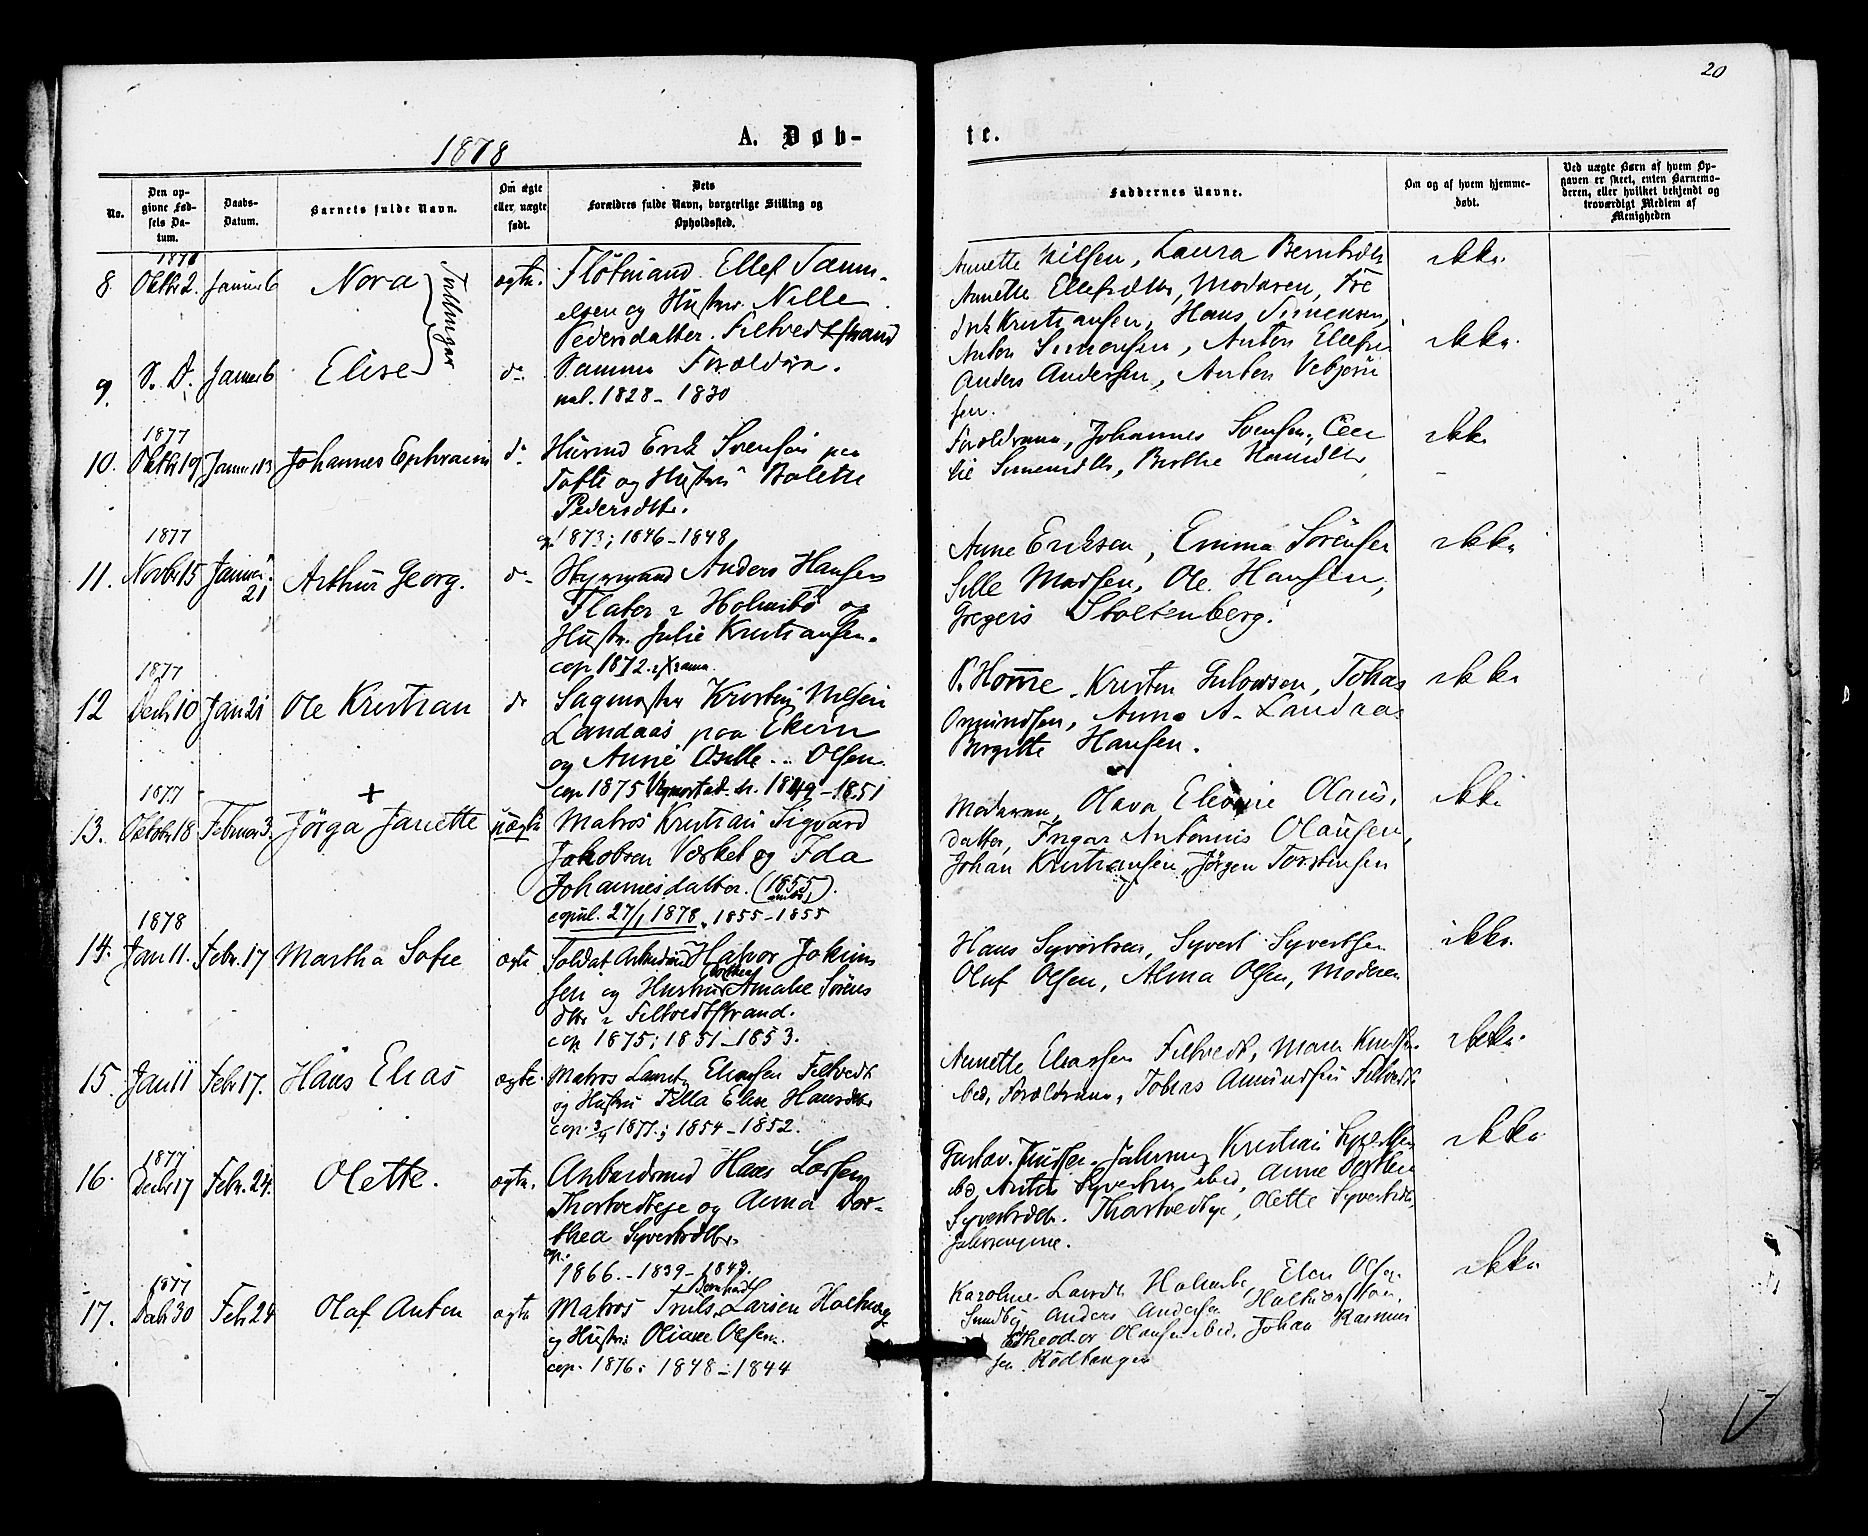 20
1878
A. Døb-
te.
No.
Den op-
givne Fød-
sels Da-
tum.
Daabs-
Datum.
Barnets fulde Navn.
Om ægte
eller uægte
født.
Dets
Forældres fulde Navn, borgerlige Stilling og
Opholdssted.
Faddernes Navne.
Om og af hvem hjemme-
døbt.
Ved uægte Børn af hvem Op-
gaven er skeet, enten Barnemo-
deren, eller hvilket bekjendt og
troværdigt Medlem af
Menigheden
8
Oktbr 2.
Januar 6
Nora
Tvillinger
ægte.
Flötmand Ellef Sam-
elsen og Hustru Nille
Pedersdatter. Filtvedtstrand
Annette Nilsen, Laura Berntsdtr
Annette Ellefsdtr, Moderen, Fre
drik Kristiansen, Hans Simensen,
ikke
9.
S. D.
Januar 6
Elise
do
Samme Forældre.
nat. 1828 - 1830
Anton Simensen, Anton Ellefsen
Anders Andersen, Anton Vebjörn
sen.
ikke.
1877
10.
Oktbr 19
Januar 13
Johannes Ephraim
do
Husmd Erik Svensen paa
Tofte og Hustru Bolette
Pedersdtr.
cop 1873; 1846-1848
Forældrene, Johannes Svensen, Cecilie
ikke
1877
11.
Novbr 15
Januar
21
Arthur Georg.
do
Styrmand Anders Hansen
Flater i Holmsbo og
Hustru Julie Kristiansen.
cop 1872.
Anne Eriksen, Emma Sörensen
Sille Madsen, Ole Hansen,
Gregers Stoltenberg.
ikke
1877
12
Decbr 10
Jan 21
Ole Kristian
do
Sagmester Kristen Nilsen
Landaas paa Ekern
og Anne Oselle Olsen
cop 1875 1849-1851
P. Homme, Kristen Gulowsen, Tobias
Omundsen, Anne A. Landaas
Bergitte Hansen.
ikke
1877
13.
Oktober 18
Februar 3.
+
Jörga Janette
uægte
Matros Kristian Sigvard
Jakobsen Værket og Ida
Johannesdatter. (1855 ambo).
copul. 27/1 1878. 1855-1855
Moderen, Olava Eleonie Olaus.
datter, Inger Antonius Olausen,
Johan Kristiansen, Jörgen Torstensen
ikke
1878
14.
Jan 11.
Febr. 17
Martha Sofie
ægte
Soldat Arbeidsmd Halvor Jokim
sen og Hustru Amalie Sörens
dtr i Filtvedtstrand.
cop 1875; 1851-1853.
Hans Syvertsen, Syvert Syvertsen
Oluf Olsen, Alma Olsen, Moderen
ikke.
15.
Jan 11
Febr 17.
Hans Elias
ægte.
Matros Lauritz Eliassen Filtvedt
og Hustru Tilla Elise Hansdtr
cop. 1877.; 1854-1852.
Annette Eliassen Filtvedt, Maren Knudsen
ibid, Forældrene, Tobias Amundsen Filtvedt
ikke.
1877
16.
Decbr 17
Febr. 24.
Olette.
ægte.
Arbeidsmd Hans Larsen
Thorvedteje og Anna Dor-
thea Syvertsdtr.
cop.
1866.-1839-1843.
Gustav Knudsen Kristian Syvertsen
ibd, Anton Syvertsen ibid, Anne Dorthea
Syvertsdtr. Thortvedteje, Olette Syvertsdtr,
ikke
1877
17.
Decbr 30
Feb 24
Olaf Anton
ægte
Matros Truls Bernhard Larsen Holtnæs
og Hustru Oliane Olsen.
cop. 1876: 1848-1844
Karoline Holmsbo, Elen Olsen
Sundby, Anders Andersen
Theodor Olausen ibid, Johan Rasmus
sen Rödtangen
ikke